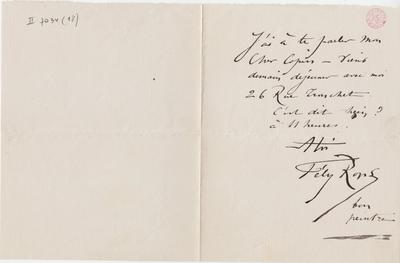 II 7034 (18)
J'ai à te parler Mon
Cher Copin – Viens
demain déjeuner avec moi
26 Rue Tronchet
C'est dit hein ?
à 11 heures.
Fély Rops
bon
peintre